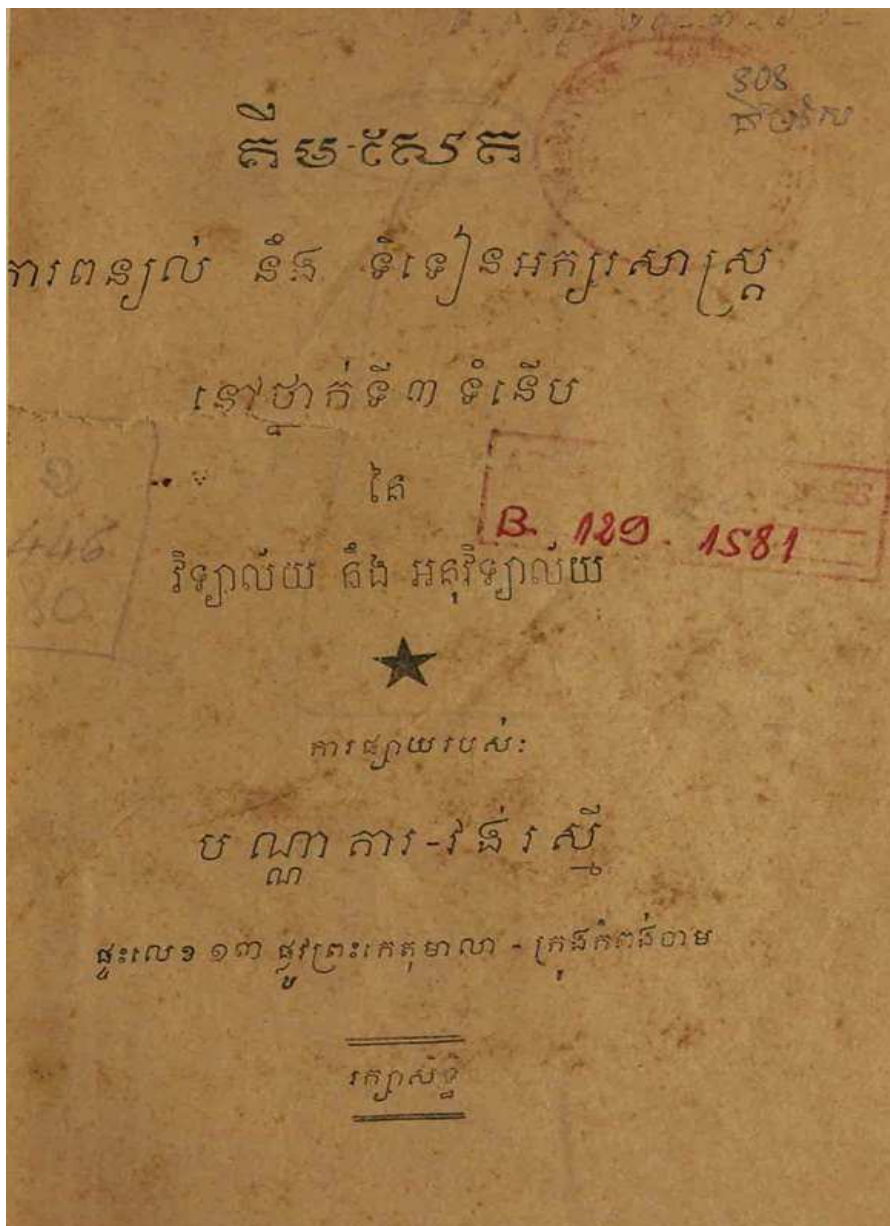 808
គឹម-សែត
ការពន្យល់ នឹង ទំទៀនអក្សរសាស្ត្រ
នៅថ្នាក់ទី៣ ទំនើប
នៃ
B. 129. 1581
446
80
វិទ្យាល័យ នឹង អនុវិទ្យាល័យ
ការផ្សាយរបស់:
បណ្ណាគារ-វង់រស្មី
ផ្ទះលេខ ១៣ ផ្លូវព្រះកេតុមាលា - ក្រុងកំពង់ចាម
រក្សាសិទ្ធិ